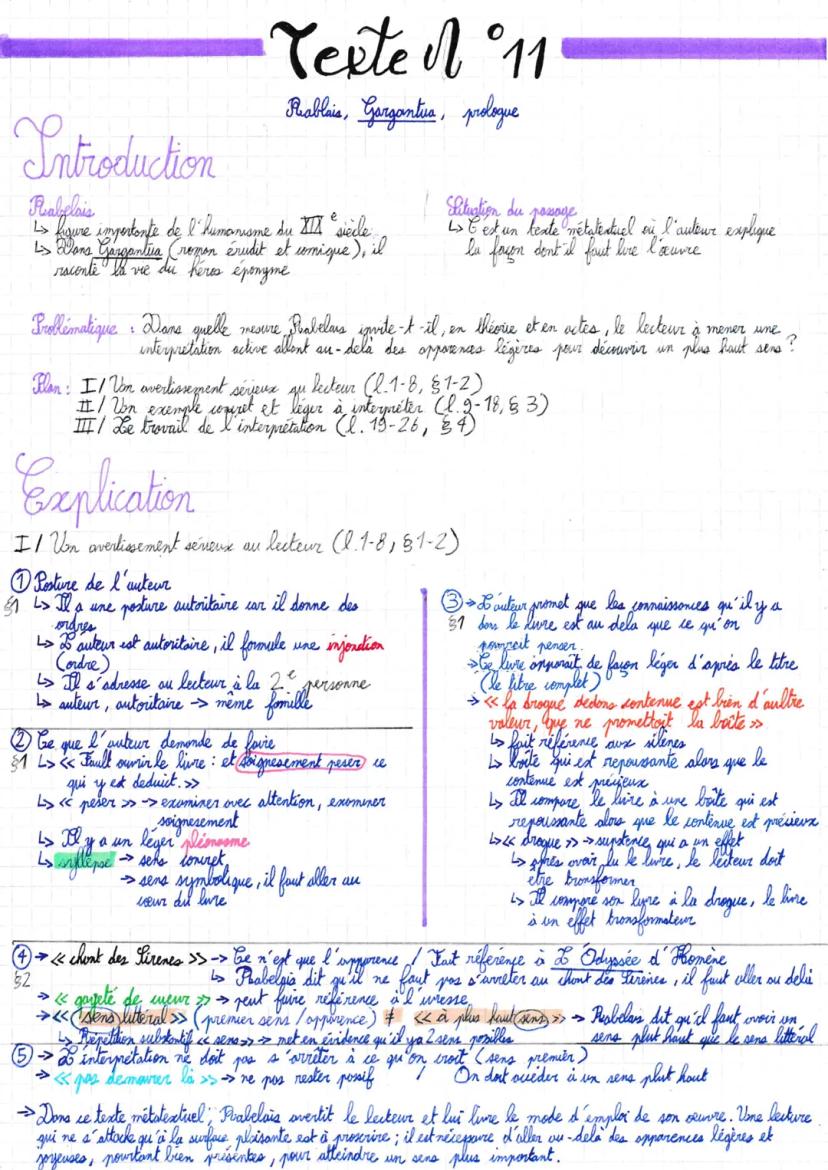 Texte N°11
Rablais, Gargantua, prologue
Introduction
Rabelais
↳ figure importante de l'humanisme du XVIe siècle
↳ Dans Gargantua (roman érudit et comique), il
raconte la vie du héros éponyme
Situation du passage
↳ C'est un texte métatextuel où l'auteur explique
la façon dont il faut lire l'œuvre
Problématique : Dans quelle mesure Rabelais invite-t-il, en théorie et en actes, le lecteur à mener une
interprétation active allant au-delà des apparences légères pour découvrir un plus haut sens ?
Plan : I/ Un avertissement sérieux au lecteur (l.1-8, §1-2)
II/ Un exemple concret et léger à interpréter (l.9-18, §3)
III/ Le travail de l'interprétation (l.19-26, §4)
Explication
I/ Un avertissement sérieux au lecteur (l.1-8, §1-2)
① Posture de l'auteur
§1 ↳ Il a une posture autoritaire car il donne des
ordres
↳ L'auteur est autoritaire, il formule une injonction
(ordre)
↳ Il s'adresse au lecteur à la 2e personne
↳ auteur, autoritaire → même famille
② Ce que l'auteur demande de faire
§1 ↳ « Fault ouvrir le livre : et soignesement peser ce
qui y est deduict. »
↳ « peser » → examiner avec attention, examiner
soignesement
↳ Il y a un léger pléonasme
↳ syllepse → sens concret
→ sens symbolique, il faut aller au
cœur du livre
③ → L'auteur promet que les connaissances qu'il y a
§1 dans le livre est au dela que ce qu'on
pourrait penser.
→ Ce livre apparaît de façon léger d'après le titre
(le titre complet)
→ « la drogue dedans contenue est bien d'aultre
valeur, que ne promettoit la boîte »
↳ fait référence aux silènes
↳ boîte qui est repoussante alors que le
contenue est précieux
↳ Il compare le livre à une boîte qui est
repoussante alors que le contenue est précieux
↳ « drogue » → substence qui a un effet
↳ après avoir lu le livre, le lecteur doit
être transformer
↳ Il compare son livre à la drogue, le livre
à un effet transformateur
④ → « chant des Sirenes » → Ce n'est que l'apparence / Fait référence à L'Odyssée d'Homène
§2 ↳ Rabelais dit qu'il ne faut pas s'arrêter au chant des Sirènes, il faut aller au delà
→ « gayeté de cueur » → peut faire référence à l'ivresse
→ « sens littéral » (premier sens / apparence) ≠ « à plus hault sens » → Rabelais dit qu'il faut avoir un
sens plut haut que le sens littéral
↳ Répétition substantif « sens » → met en évidence qu'il y a 2 sens posilles
⑤ → L'interprétation ne doit pas s'arrêter à ce qu'on croit (sens premier)
→ « pas demourer là » → ne pas rester passif / On doit accéder à un sens plut haut
→ Dans ce texte métatextuel, Rabelais avertit le lecteur et lui livre le mode d'emploi de son œuvre. Une lecture
qui ne s'attache qu'à la surface plaisante est à proscrire ; il est nécessaire d'aller au-delà des apparences légères et
joyeuses, pourtant bien présentes, pour atteindre un sens plus important.